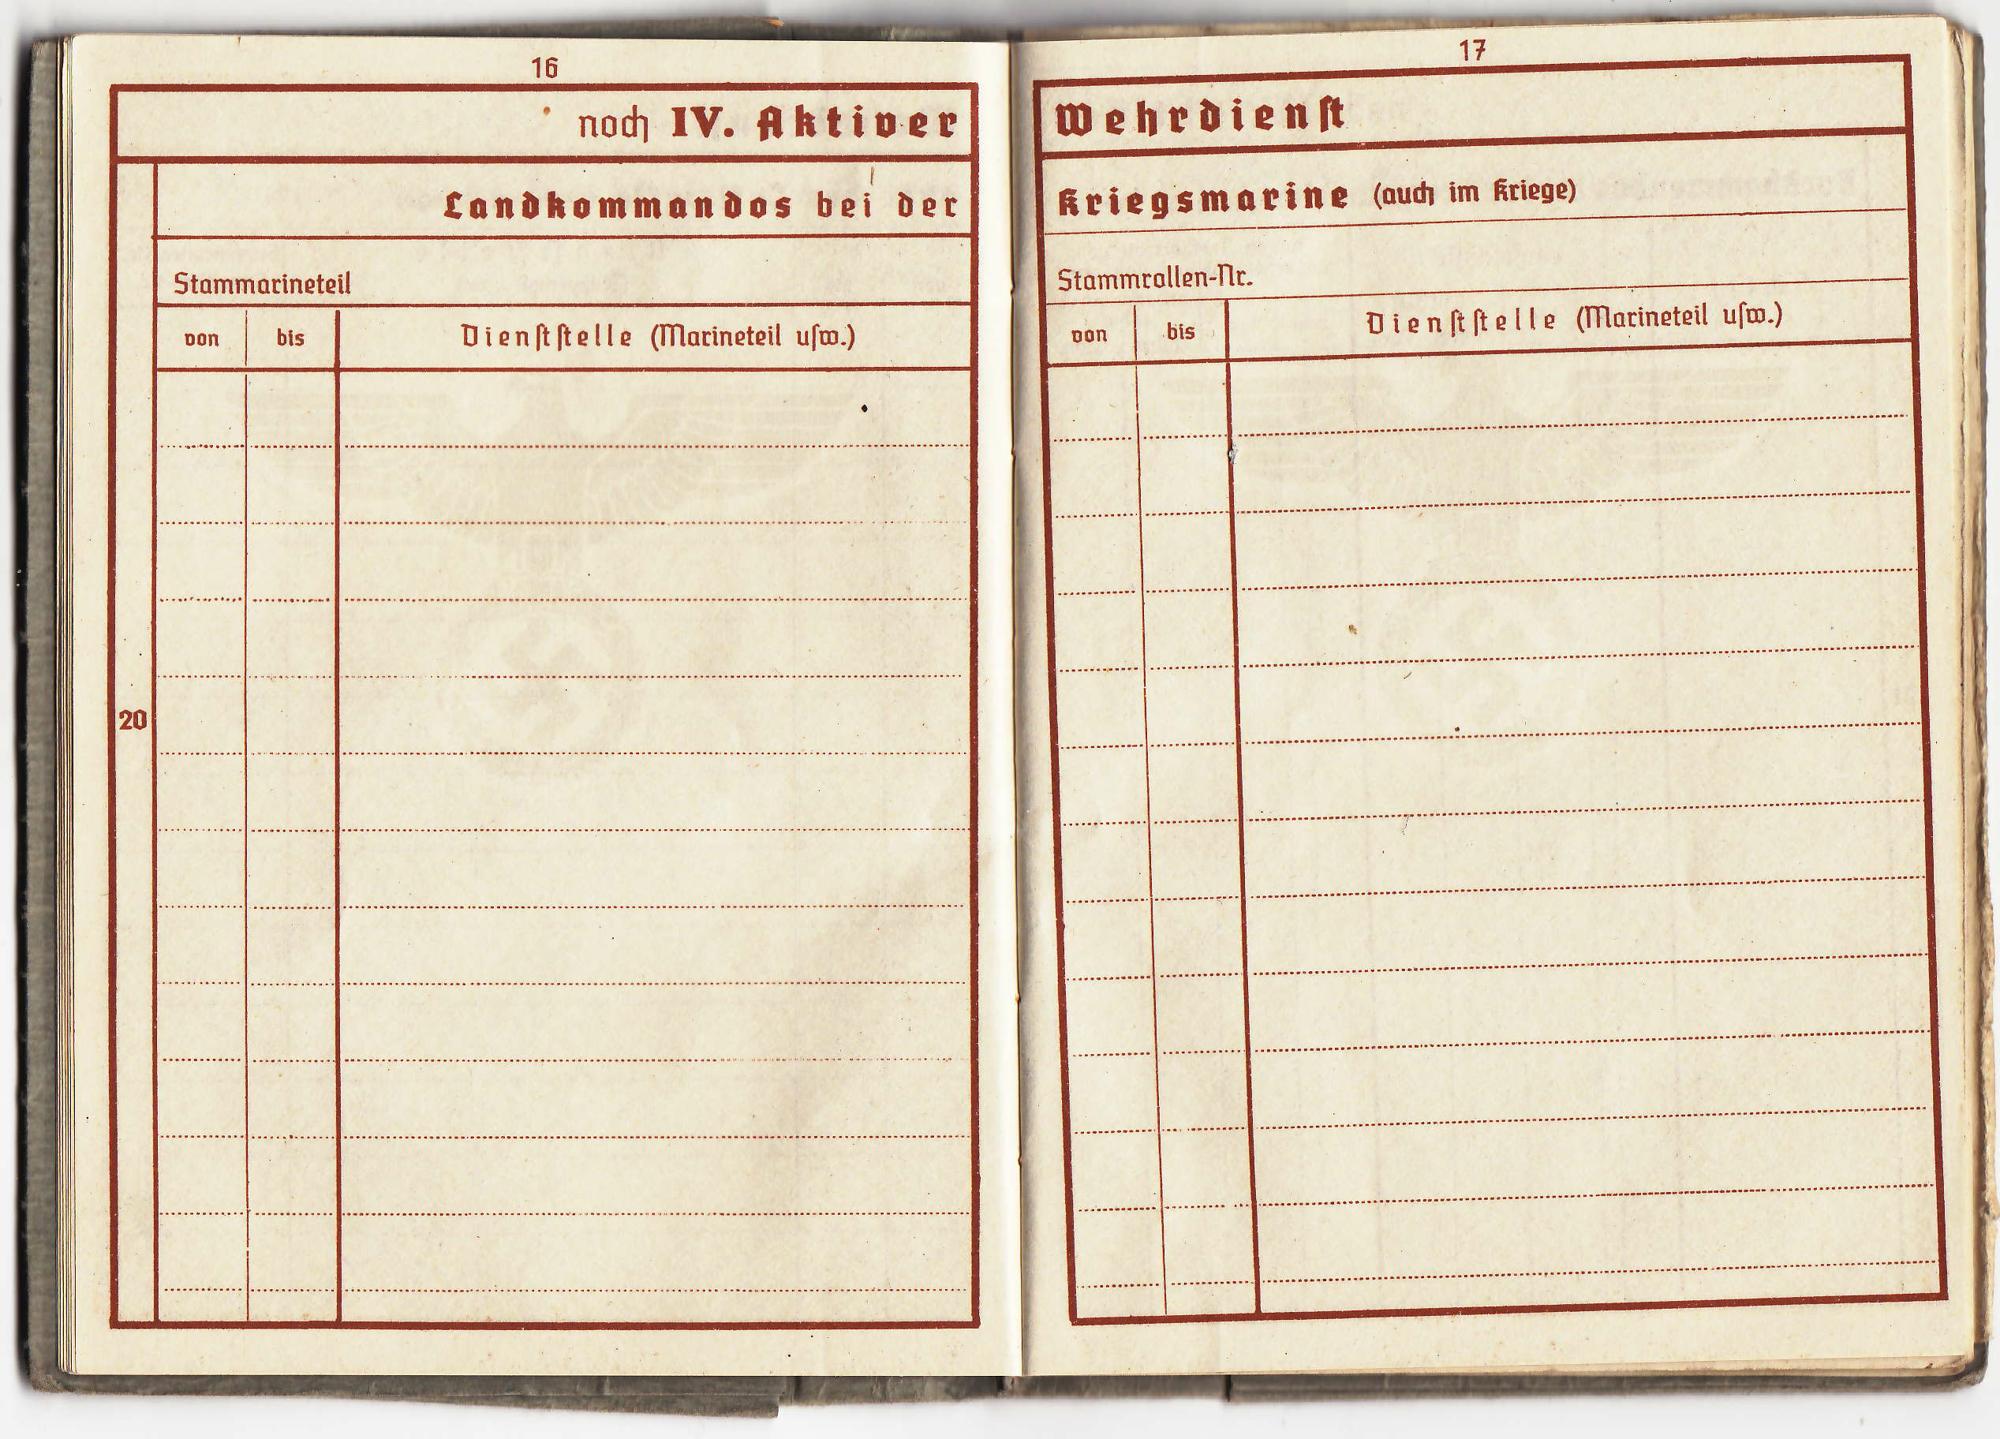 16
noch IV. Aktiver
Landkommandos bei der
Stammarineteil
von bis Dienſtſtelle (Marineteil uſw.)
20
17
Wehrdienſt
Kriegsmarine (auch im Kriege)
Stammrollen-Nr.
von bis Dienſtſtelle (Marineteil uſw.)